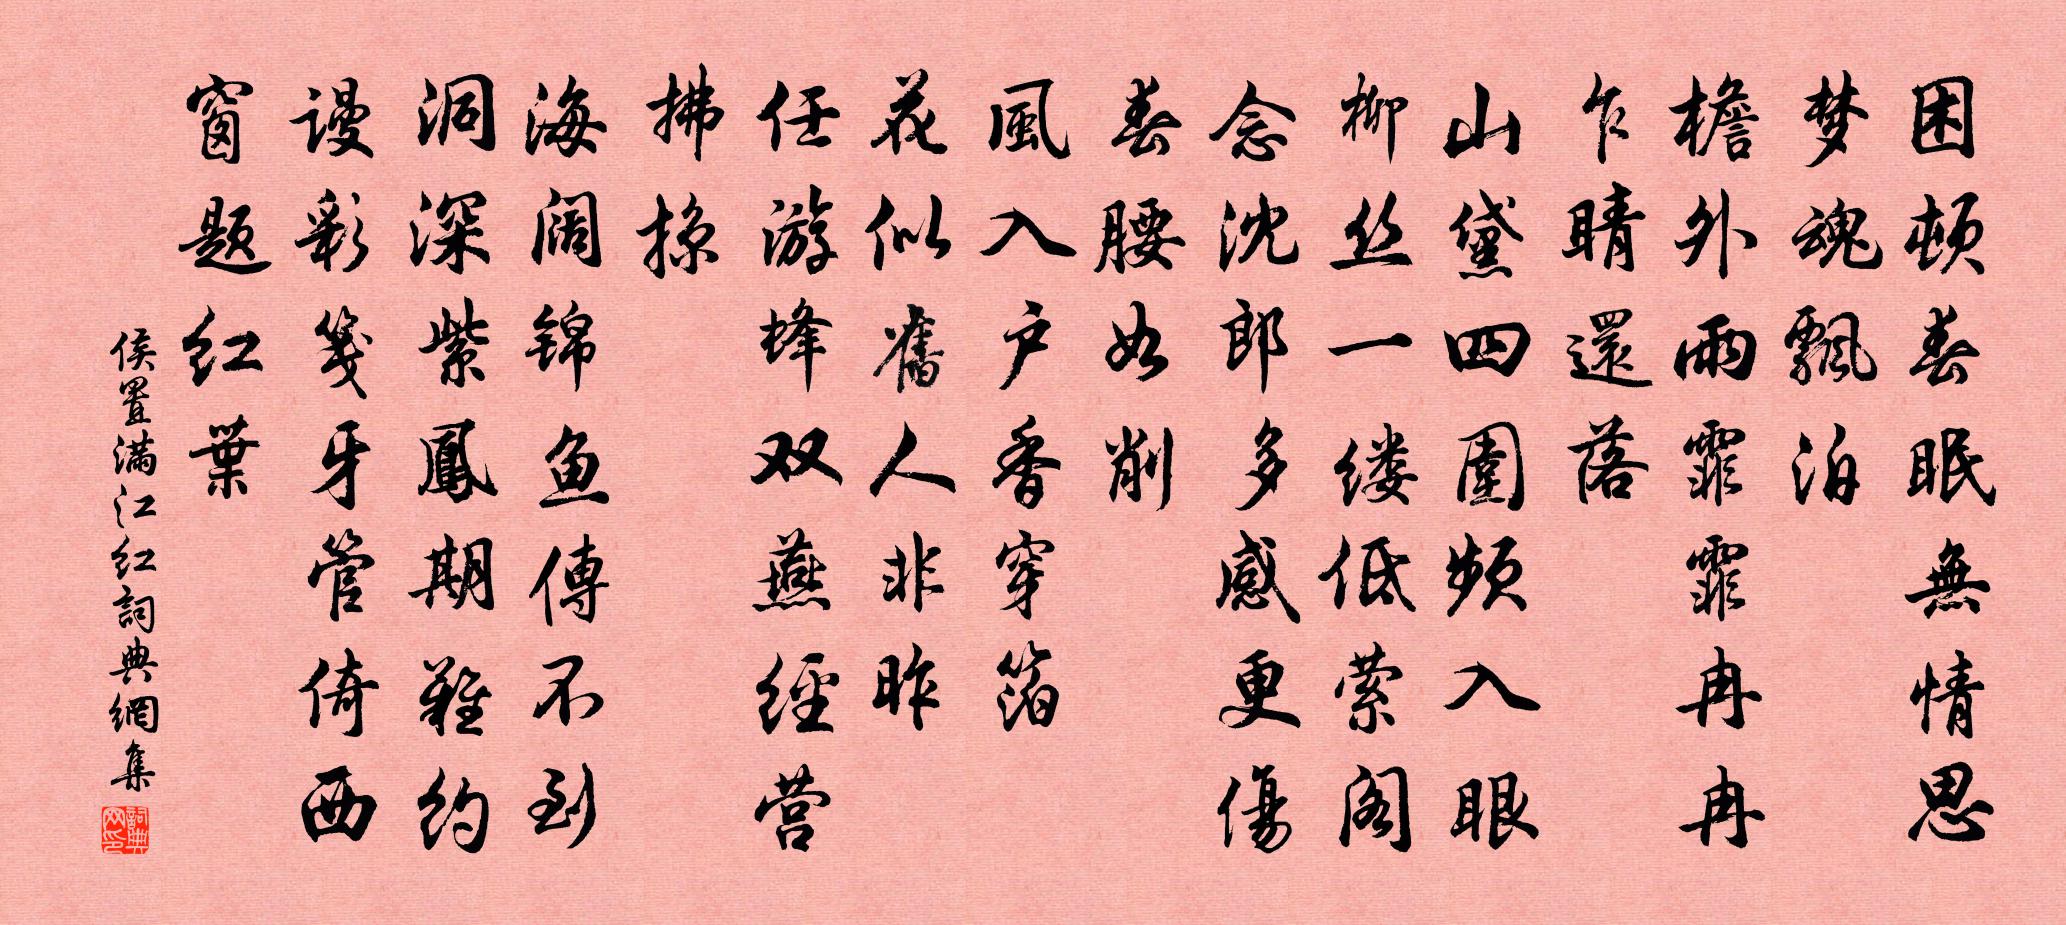 困顿春眠無情思
梦魂飄泊
檐外雨霏霏冉冉
乍晴還落
山黛四圍頻入眼
柳丝一缕低萦阁
念沈郎多感更傷
春腰如削
風入户香穿箔
花似舊人非昨
任游蜂双燕経营
拂掠
海阔锦鱼傳不到
洞深紫鳳期難约
谩彩箋牙管倚西
窗题红葉
侯置满江红詞典網集
詞典网印